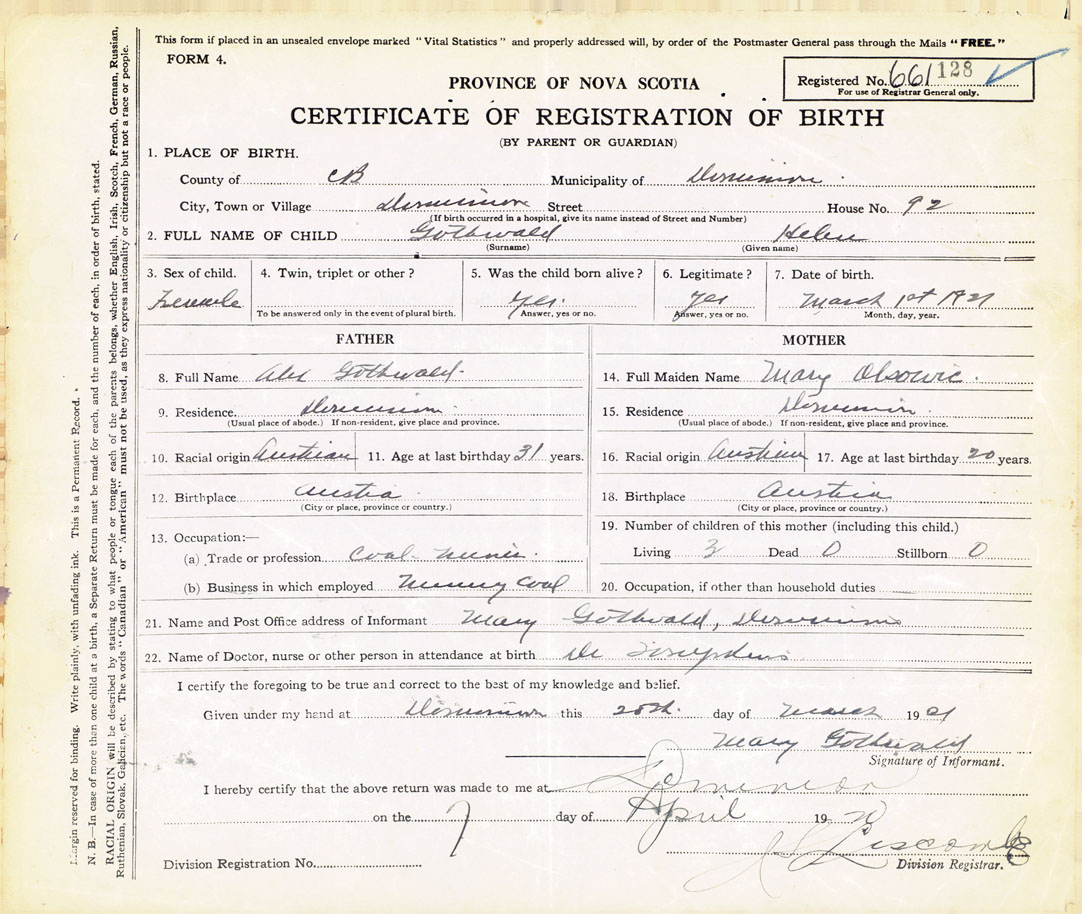 This form if placed in an unsealed envelope marked "Vital Statistics" and properly addressed will, by order of the Postmaster General pass through the Mails "FREE."
FORM 4.
Registered No. 661 128
For use of Registrar General only.
PROVINCE OF NOVA SCOTIA
CERTIFICATE OF REGISTRATION OF BIRTH
(BY PARENT OR GUARDIAN)
1. PLACE OF BIRTH.
County of CB Municipality of Dominion
City, Town or Village Dominion Street House No. 92
(If birth occurred in a hospital, give its name instead of Street and Number)
2. FULL NAME OF CHILD Gothwald Helen
(Surname) (Given name)
3. Sex of child. 4. Twin, triplet or other? 5. Was the child born alive? 6. Legitimate? 7. Date of birth.
Female Yes. Yes March 1st 1921
To be answered only in the event of plural birth. Answer, yes or no. Answer, yes or no. Month, day, year.
FATHER MOTHER
8. Full Name Alex Gothwald 14. Full Maiden Name Mary Obsowic
9. Residence. Dominion 15. Residence Dominion
(Usual place of abode.) If non-resident, give place and province. (Usual place of abode.) If non-resident, give place and province.
10. Racial origin Austrian 11. Age at last birthday 31 years. 16. Racial origin Austrian 17. Age at last birthday 20 years.
12. Birthplace Austia 18. Birthplace Austria
(City or place, province or country.) (City or place, province or country.)
13. Occupation:— 19. Number of children of this mother (including this child.)
(a) Trade or profession Coal Miner Living 3 Dead 0 Stillborn 0
(b) Business in which employed Mining Coal 20. Occupation, if other than household duties
21. Name and Post Office address of Informant Mary Gothwald, Dominion
22. Name of Doctor, nurse or other person in attendance at birth Dr
I certify the foregoing to be true and correct to the best of my knowledge and belief.
Given under my hand at Dominion this 20th. day of March 1921
Mary Gothwald
Signature of Informant.
I hereby certify that the above return was made to me at Dominion
on the 7 day of April 19
Liscomb
Division Registration No. Division Registrar.
Margin reserved for binding. Write plainly, with unfading ink. This is a Permanent Record.
N. B.—In case of more than one child at a birth, a Separate Return must be made for each, and the number of each, in order of birth, stated.
RACIAL ORIGIN will be described by stating to what people or tongue each of the parents belongs, whether English, Irish, Scotch, French, German, Russian,
Ruthenian, Slovak, Galician, etc. The words "Canadian" or "American" must not be used, as they express nationality or citizenship but not a race or people.